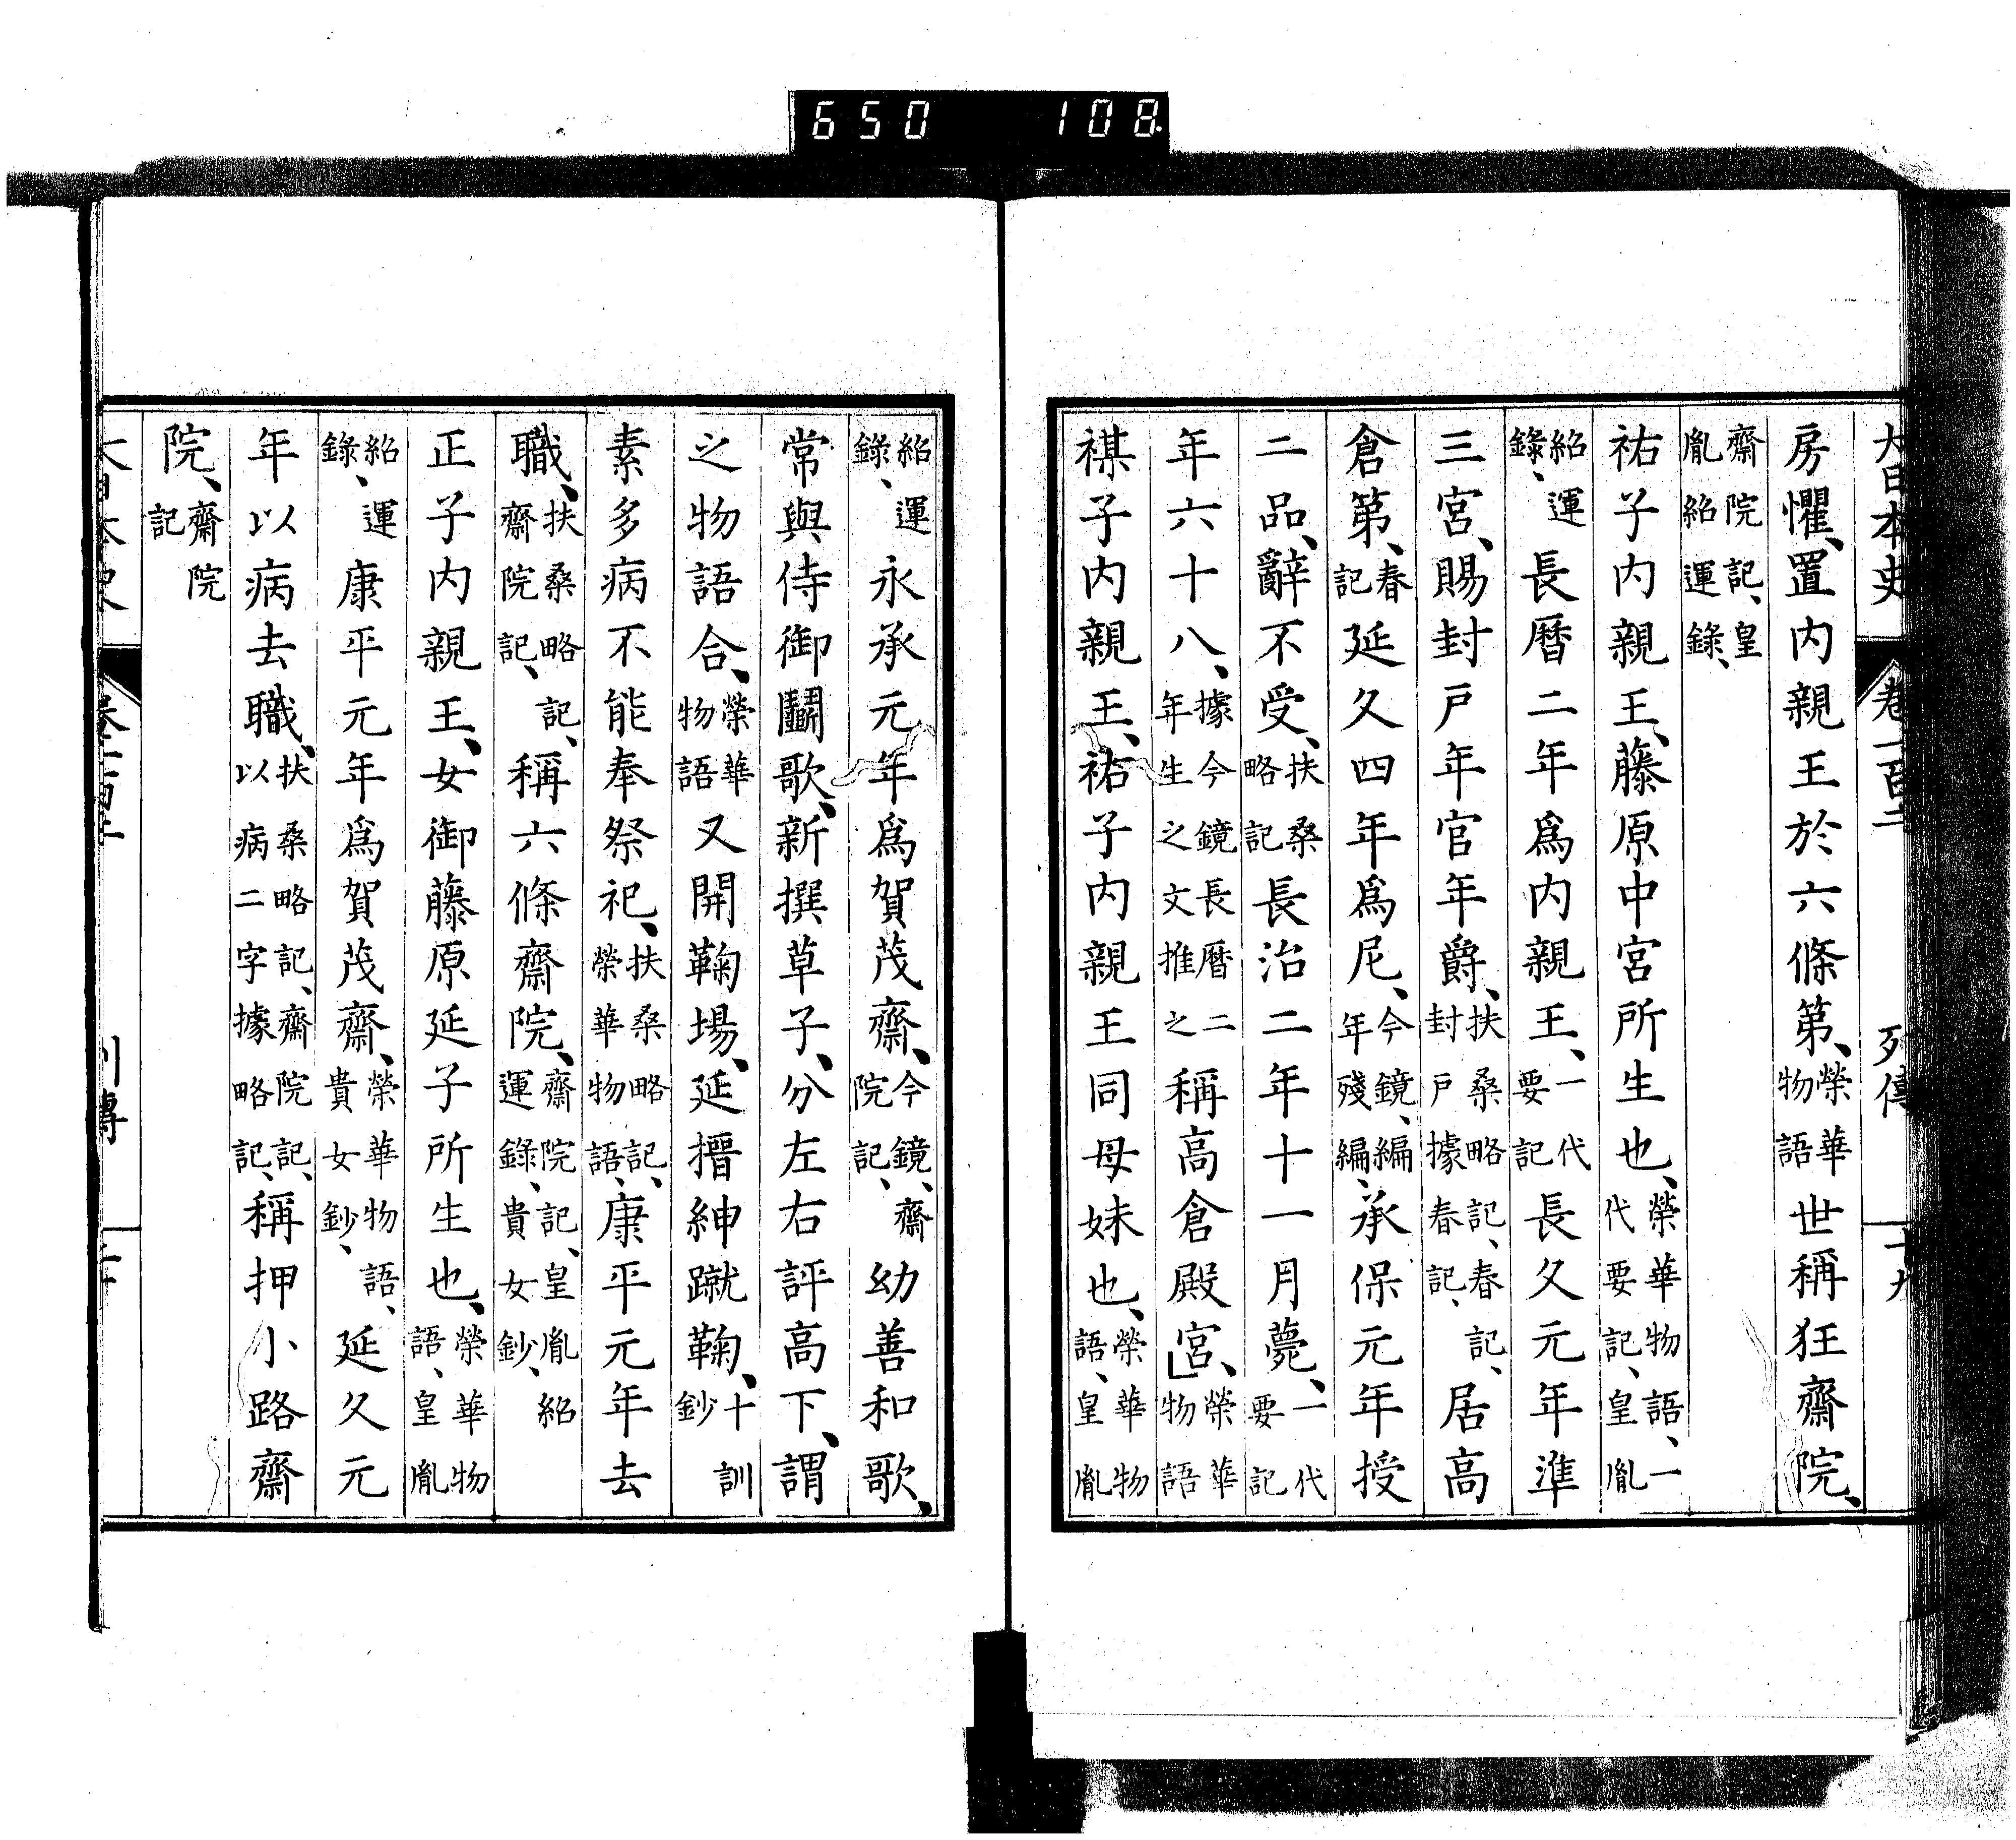 650 108
大日本史 卷一百二 列傳 十九
房懼、置內親王於六條第、榮華物語世稱狂齋院、
齋院記、皇胤紹運錄、
祐子內親王、藤原中宮所生也、榮華物語、一代要記、皇胤
紹運錄、長曆二年爲內親王、一代要記長久元年準
三宮、賜封戶年官年爵、扶桑略記、春記、封戶據春記、居高
倉第、春記延久四年爲尼、今鏡、編年殘編、承保元年授
二品、辭不受、扶桑略記長治二年十一月薨、一代要記
年六十八、據今鏡長曆二年生之文推之稱高倉殿宮、榮華物語
禖子內親王、祐子內親王同母妹也、榮華物語、皇胤
紹運錄、永承元年爲賀茂齋、今鏡、齋院記、幼善和歌、
常與侍御鬬歌、新撰草子、分左右評高下、謂
之物語合、榮華物語又開鞠場、延搢紳蹴鞠、十訓鈔
素多病不能奉祭祀、扶桑略記、榮華物語、康平元年去
職、扶桑略記、齋院記、稱六條齋院、齋院記、皇胤紹運錄、貴女鈔、
正子內親王、女御藤原延子所生也、榮華物語、皇胤
紹運錄、康平元年爲賀茂齋、榮華物語、貴女鈔、延久元
年以病去職、扶桑略記、齋院記、以病二字據略記、稱押小路齋
院、齋院記